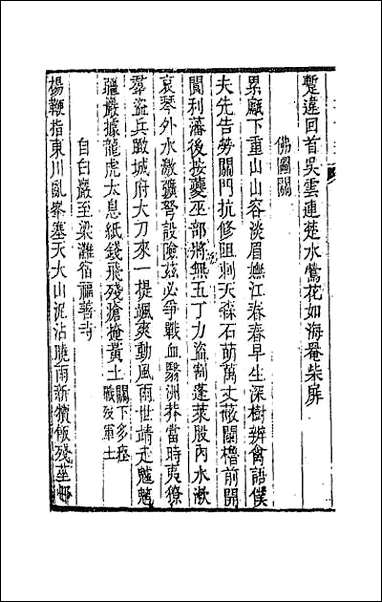 暫違回首吳雲連楚水鶯花如海罨柴扉
佛圖關
累巖下重山山容淡眉嫵江春春早生深樹辨禽語僕
夫先告勞關門抗修阻刺天森石萌萬丈敞閣櫓前開
閬利藩後按夔巫部將無五丁力盜割蓬萊股內水漱
哀琴外水激彊弩設險茲必爭戰血翳洲莽當時夷獠
羣盜兵敵城府大刀來一提颯爽動風雨世靖走魑魅
疆嚴據龍虎太息紙錢飛殘磷掩黃土
關下多葬
戰歿軍士
自白巖至梁灘宿福善寺
楊鞭指東川亂峯塞天大山泥沾曉雨新犢飯殘